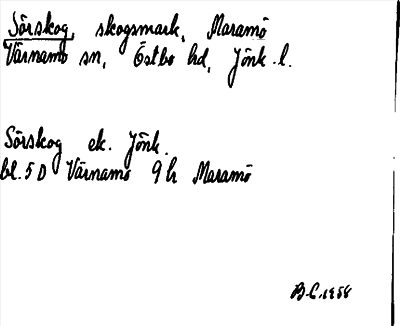 Sörskog, skogsmark, Maramö
Värnamo sn, Östbo hd, Jönk. l.
Sörskog ek. Jönk.
bl. 5 D Värnamo 9 h Maramö
B.C. 1958